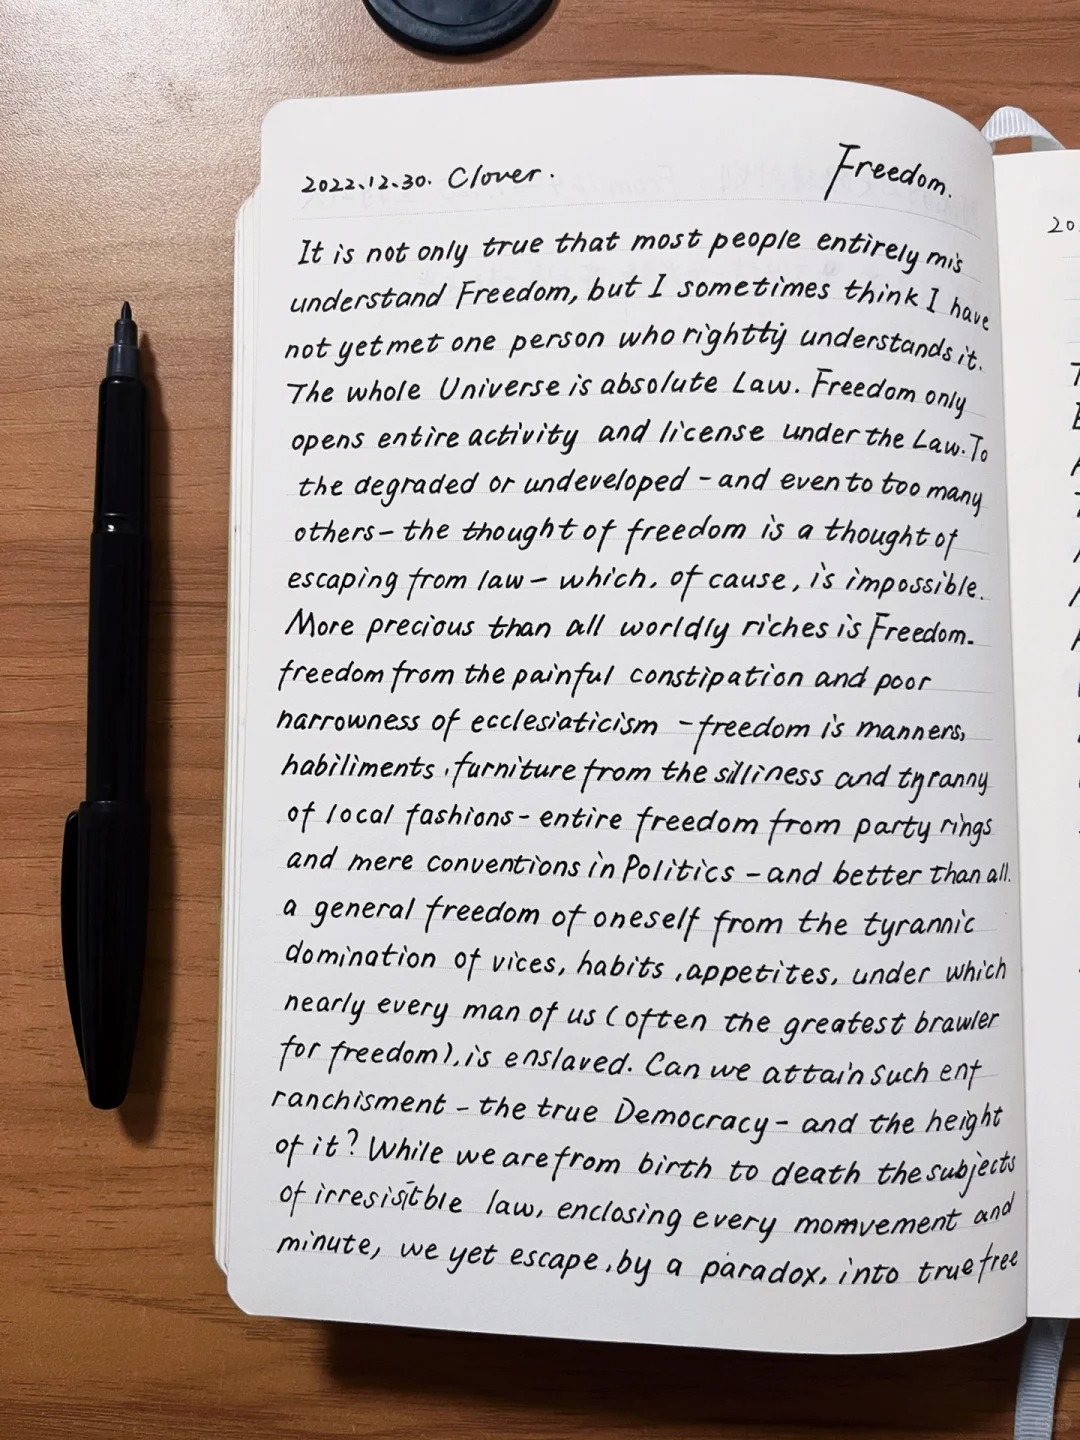 2022.12.30. Clover.
Freedom.
It is not only true that most people entirely mis
understand Freedom, but I sometimes think I have
not yet met one person who rightty understands it.
The whole Universe is absolute Law. Freedom only
opens entire activity and license under the Law. To
the degraded or undeveloped - and even to too many
others - the thought of freedom is a thought of
escaping from law - which, of cause, is impossible.
More precious than all worldly riches is Freedom-
freedom from the painful constipation and poor
narrowness of ecclesiaticism - freedom is manners,
habiliments, furniture from the silliness and tyranny
of local fashions - entire freedom from party rings
and mere conventions in Politics - and better than all.
a general freedom of oneself from the tyrannic
domination of vices, habits, appetites, under which
nearly every man of us (often the greatest brawler
for freedom), is enslaved. Can we attain such enf
ranchisment - the true Democracy - and the height
of it? While we are from birth to death the subjects
of irresistble law, enclosing every momvement and
minute, we yet escape, by a paradox, into true free
20